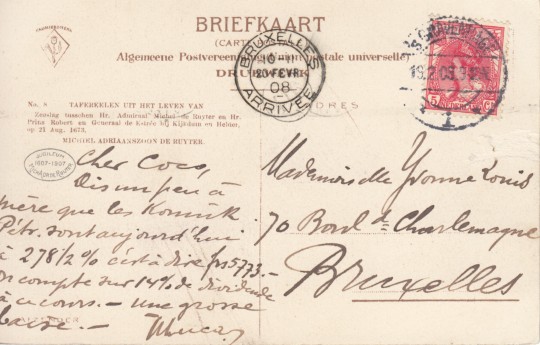 BRIEFKAART
(CARTE
Algemeene Postvereeniging Union postale universelle
DRUKWERK
ADRES
No. 8. TAFEREELEN UIT HET LEVEN VAN
Zeeslag tusschen Hr. Admiraal Michiel de Ruyter en Hr.
Prins Robert en Generaal de Estrée bij Kijkduin en Helder,
op 21 Aug. 1673.
MICHIEL ADRIAANSZOON DE RUYTER.
JUBILEUM
1607-1907
DE RUYTER
BRUXELLES
10-11
20 FEVR
08
ARRIVEE
S GRAVENHAGE
19.2.08
1
5
Cher Coco,
Dis un peu à
mère que les Konink
Pétr. sont aujourd'hui
à 278 1/2 % c'est à dire frs 5773.-
On compte sur 14% de dividende
à ce cours. - une grosse
baise. -
Mademoiselle Yvonne Louis
70 Boul d Charlemagne
Bruxelles